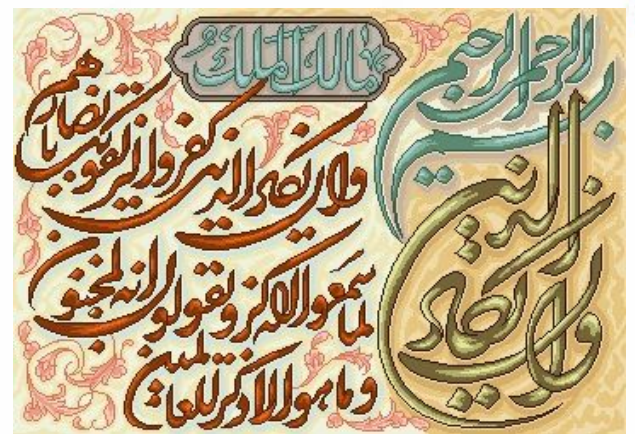 بسم الله الرحمن الرحیم
یا مالک الملک
وان یکاد الذین
وان یکاد الذین کفروا لیزلقونک بابصارهم
لما سمعوا الذکر و یقولون انه لمجنون
و ما هو الا ذکر للعالمین